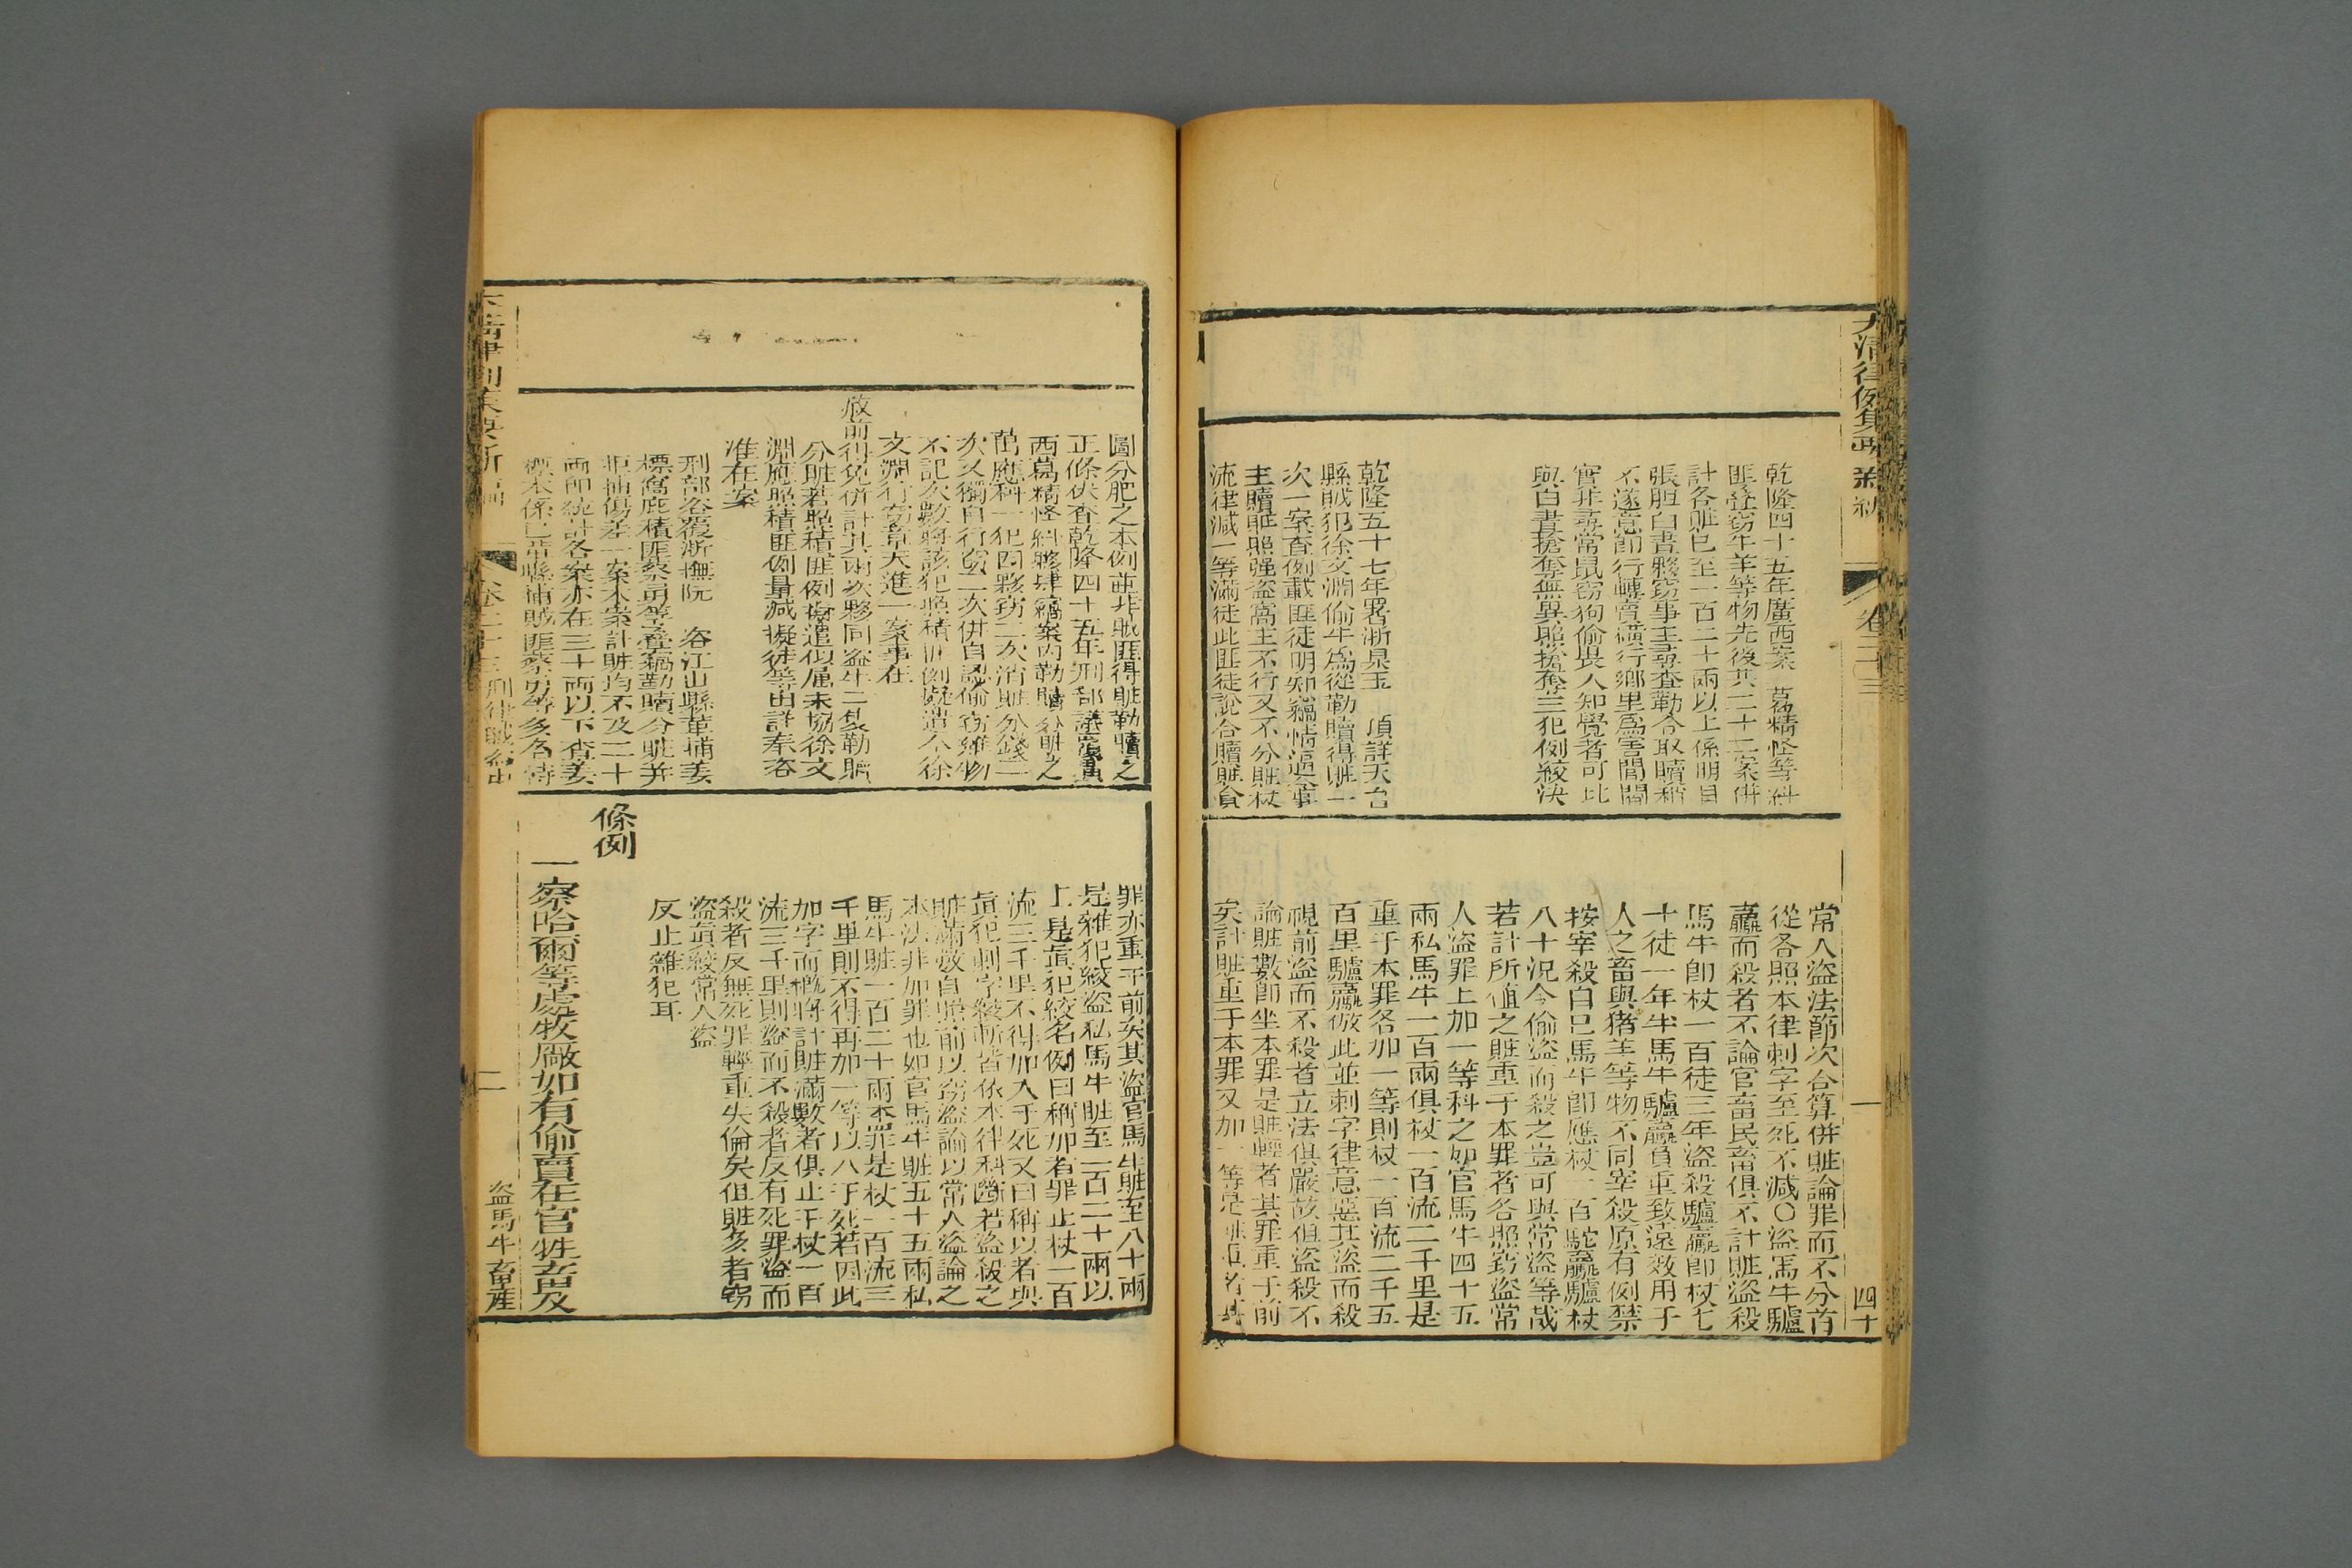 大清律例集
乾隆四十五年廣西案 葛精怪等糾
匪疊竊牛羊等物先後共二十二案併
計各贓已至一百二十兩以上係明目
張胆白晝夥竊事主尋查勒令取贖稍
不遂意卽行轉賣橫行鄉里爲害閭閻
實非尋常鼠竊狗偷畏人知覺者可比
與白晝搶奪無異照搶奪三犯例絞決
乾隆五十七年署浙臬玉 項詳天台
縣賊犯徐文淵偷牛爲從勒贖得贓一
次一案查例載匪徒明知竊情逼令事
主贖贓照强盜窩主不行又不分贓杖
流律減一等滿徒此匪徒說合贖贓貪
常人盜法節次合算併贓論罪而不分首
從各照本律刺字至死不減〇盜馬牛驢
驘而殺者不論官畜民畜俱不計贓盜殺
馬牛卽杖一百徒三年盜殺驢驘卽杖七
十徒一年半馬牛驢驘負重致遠效用于
人之畜與猪羊等物不同宰殺原有例禁
按宰殺自己馬牛卽應杖一百駝驘驢杖
八十況今偷盜而殺之豈可與常盜等哉
若計所值之贓重于本罪者各照竊盜常
人盜罪上加一等科之如官馬牛四十五
兩私馬牛一百兩俱杖一百流二千里是
重于本罪各加一等則杖一百流二千五
百里驢驘倣此並刺字律意惡其盜而殺
視前盜而不殺者立法俱嚴故但盜殺不
論贓數卽坐本罪是贓輕者其罪重于前
矣計贓重于本罪又加一等是
四十
圖分肥之本例並非賊匪得贓勒贖之
正條伏查乾隆四十五年刑部議
西葛精怪糾夥肆竊案內勒贖分贓之
萬應科一犯四夥竊二次消贓分錢二
次又獨自行竊二次併自認偷竊雜物
不記次數將該犯照積匪例擬遣今徐
文淵行竊章天進一案事在
赦前得免併計其兩次夥同盜牛二隻勒贖
分贓若照積匪例擬遣似屬未協徐文
淵應照積匪例量減擬徒等由詳奉咨
准在案
刑部咨覆浙撫阮 咨江山縣革捕姜
標窩庇積匪蔡勇等疊竊勒贖分贓并
拒捕傷差一案本案計贓均不及二十
兩卽統計各案亦在三十兩以下查姜
標本係已革縣捕賊匪蔡勇等多名
罪亦重于前矣其盜官馬牛贓至八十兩
是雜犯絞盜私馬牛贓至一百二十兩以
上是眞犯絞名例曰稱加者罪止杖一百
流三千里不得加入于死又曰稱以者與
眞犯刺字絞斬皆依本律科斷若盜殺之
贓滿數自照前以竊盜論以常人盜論之
本法非加罪也如官馬牛贓五十五兩私
馬牛贓一百二十兩本罪是杖一百流三
千里則不得再加一等以入于死若因此
加字而概將計贓滿數者俱止于杖一百
流三千里則盜而不殺者反有死罪盜而
殺者反無死罪輕重失倫矣但贓多者竊
盜眞絞常人盜
反止雜犯耳
條例
一察哈爾等處牧廠如有偷賣在官牲畜及
二
盜馬牛畜產